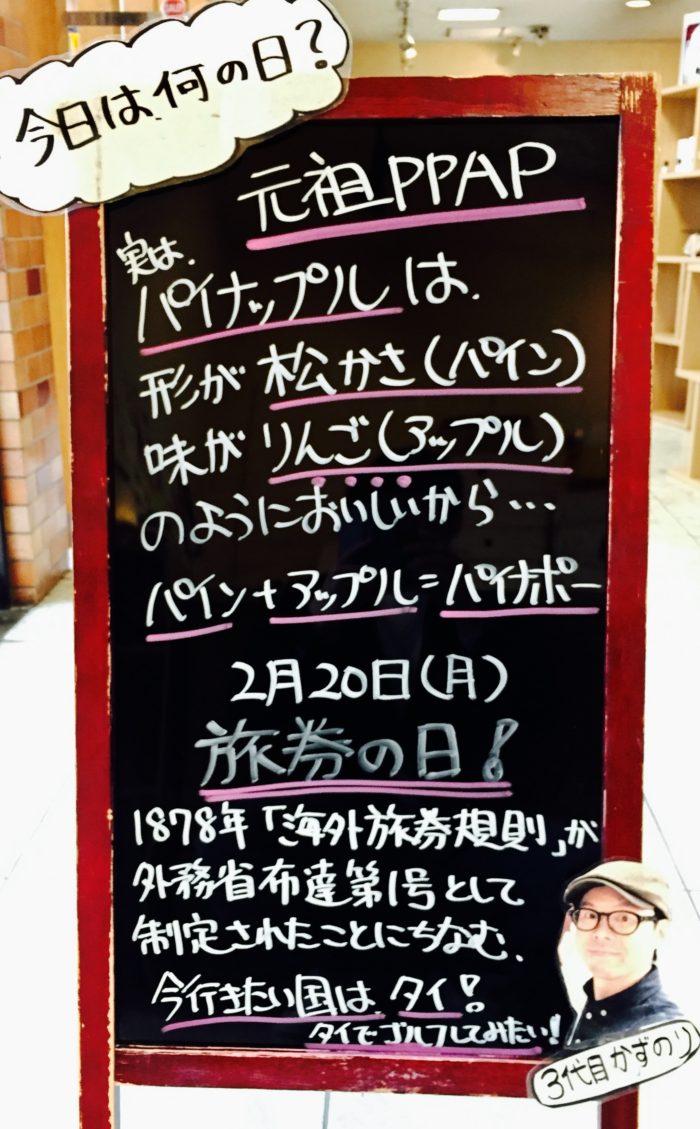 今日は何の日?
元祖PPAP
実は、
パイナップルは、
形が松かさ(パイン)
味がりんご(アップル)
のようにおいしいから…
パイン+アップル=パイナポー
2月20日(月)
旅券の日!
1878年「海外旅券規則」が
外務省布達第1号として
制定されたことにちなむ、
今行きたい国は、タイ!
タイでゴルフしてみたい!
3代目かずのり